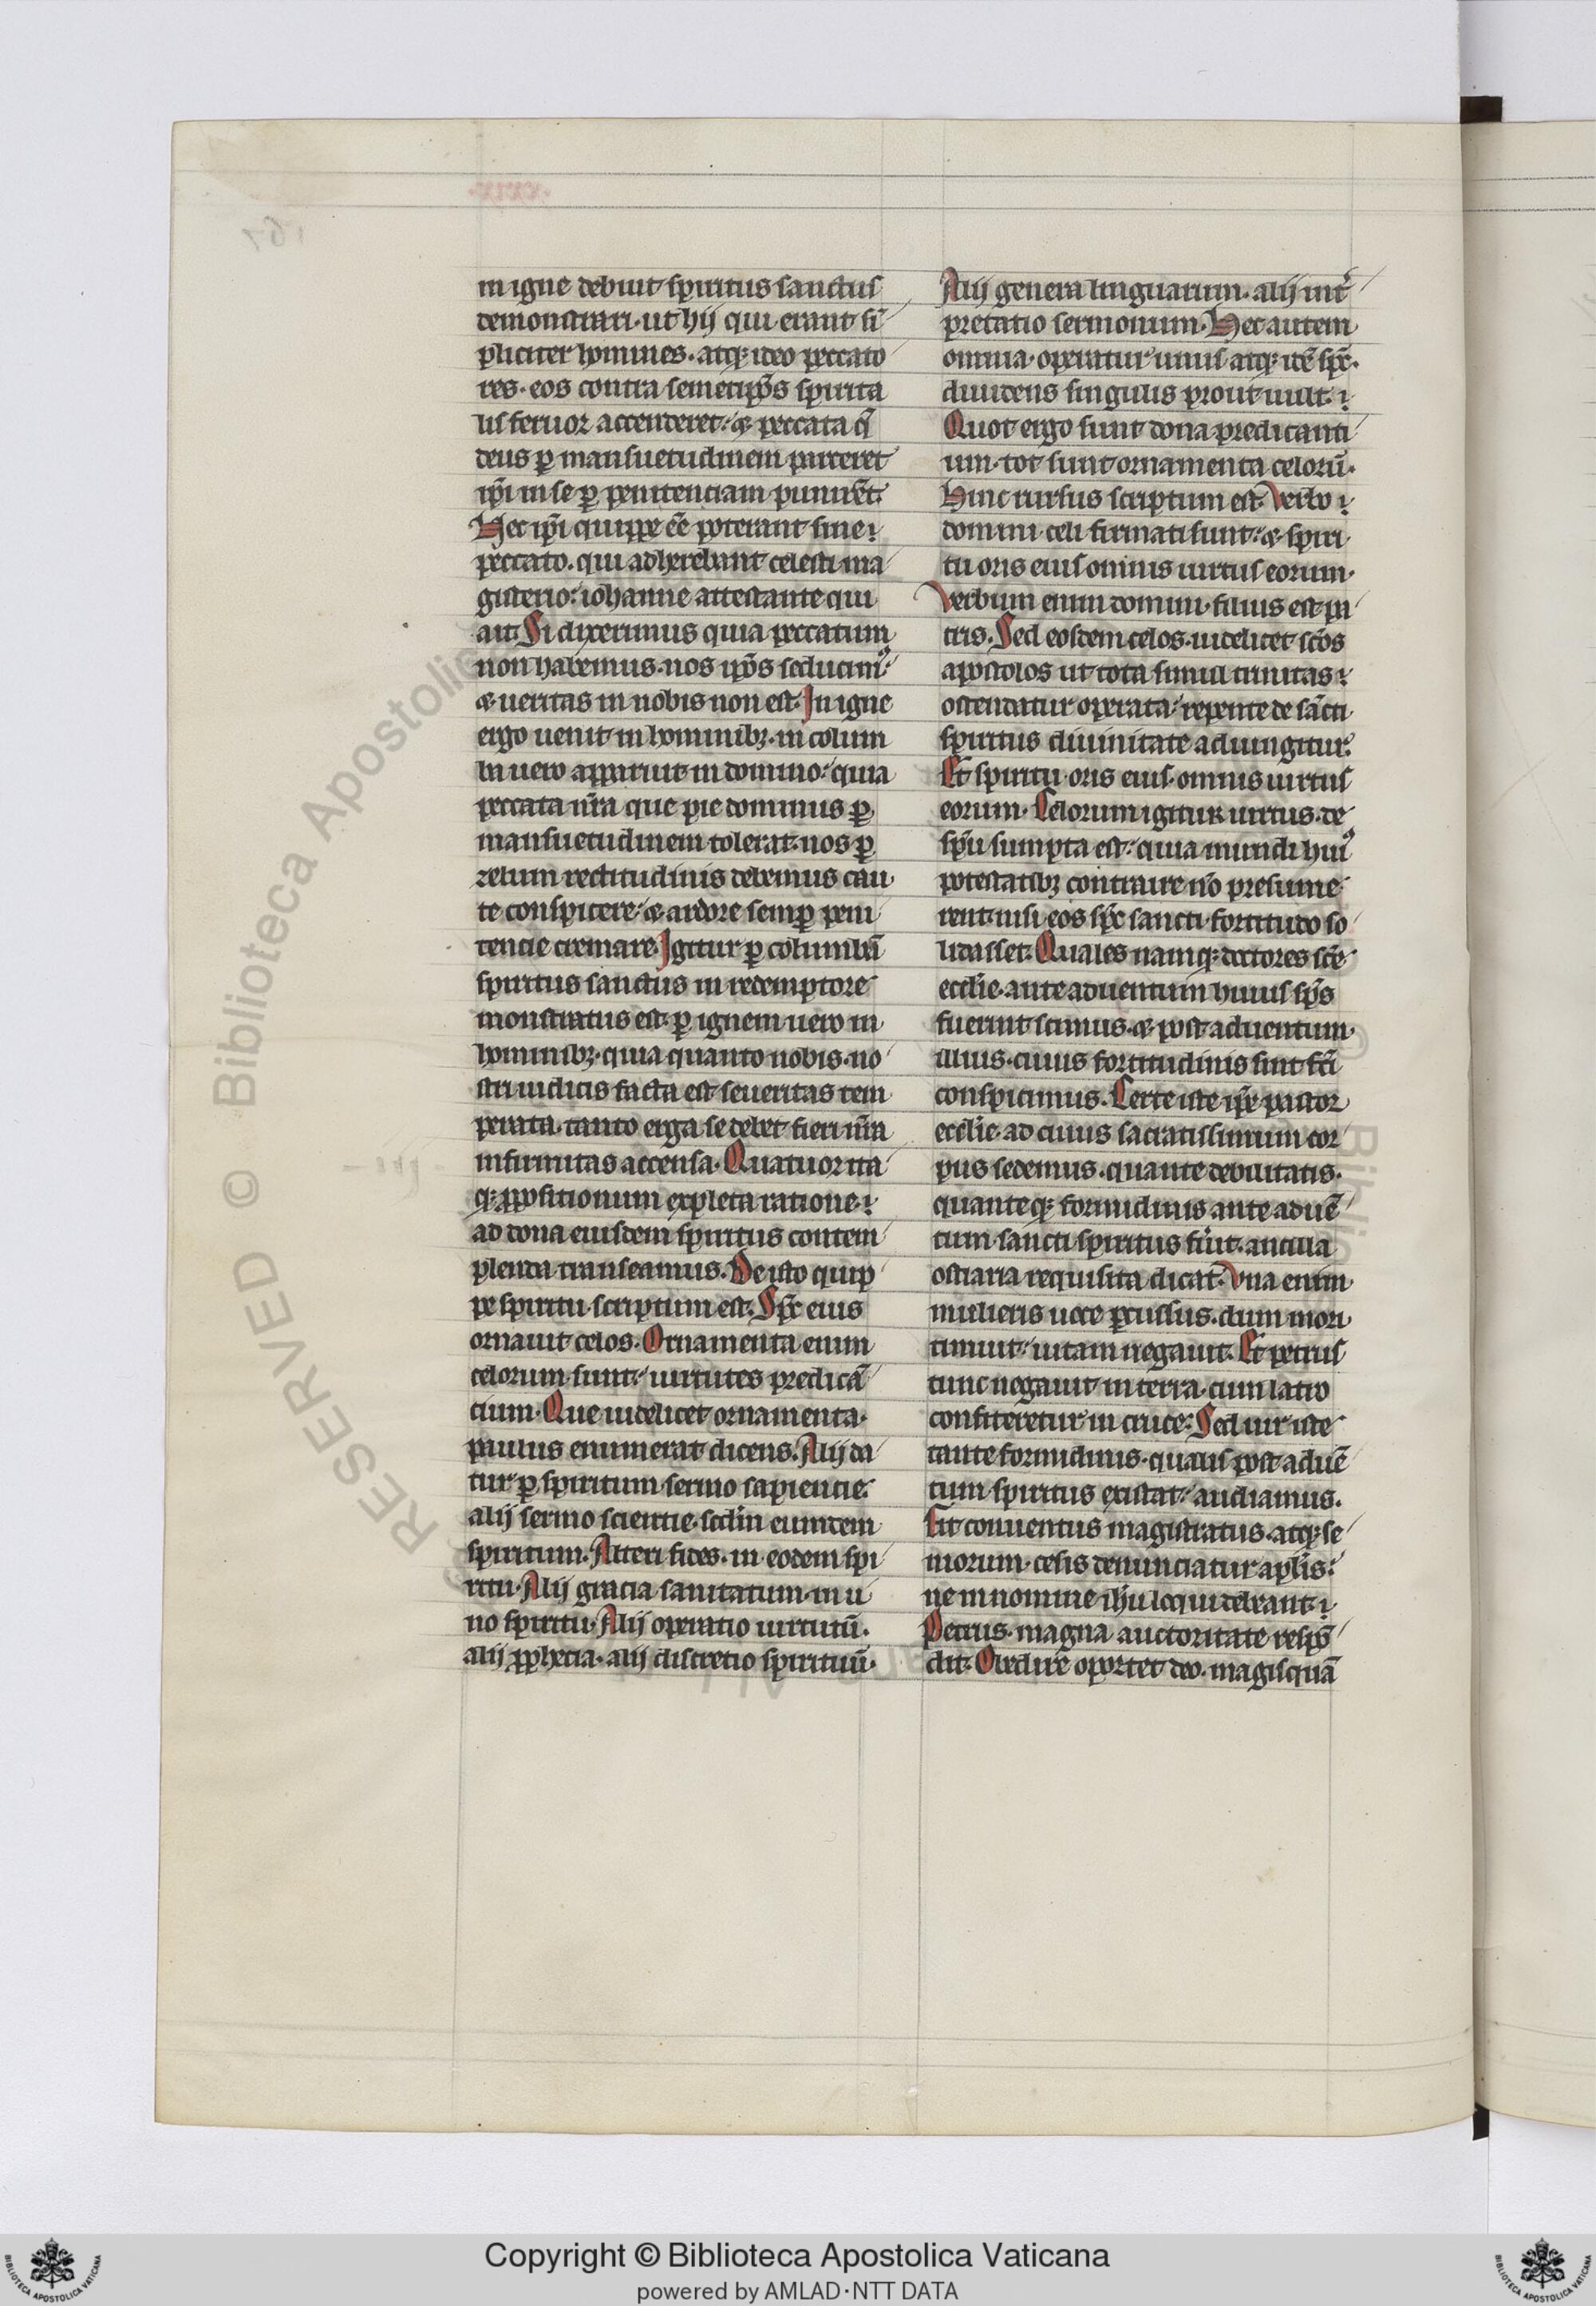 in igne debuit spiritus sanctus
demonstrari· ut hij qui erant sī
pliciter homines· atq; ideo peccato
res· eos contra semetip̄os spirita
lis feruor accenderet: ⁊ peccata q̄
deus ꝑ mansuetudinem parceret
ip̄i in se ꝑ penitenciam punirēt.
Nec ip̄i quippe ēe poterant sine
peccato· qui adherebant celesti ma
gisterio: iohanne attestante qui
ait. Si dixerimus quia peccatum
non habemus· nos ip̄os seducimꝰ:
⁊ ueritas in nobis non est. In igne
ergo uenit in hominibꝫ· in colum
ba uero apparuit in domino: quia
peccata nr̄a que pie dominus ꝑ
mansuetudinem tolerat· nos ꝑ
zelum rectitudinis debemus cau
te conspicere: ⁊ ardore semꝑ peni
tencie cremare. Igitur ꝑ columbā
spiritus sanctus in redemptore
monstratus est· ꝑ ignem uero in
hominibꝫ· quia quanto nobis no
stri iudicis facta est seueritas tem
perata· tanto erga se debet fieri nr̄a
infirmitas accensa. Quatuor ita
q; ꝓpositionum expleta ratione
ad dona eiusdem spiritus contem
planda transeamus. De isto quip
pe spiritu scriptum est. Sp̄c eius
ornauit celos. Ornamenta enim
celorum sunt: uirtutes predicā
cium. Que uidelicet ornamenta·
paulus enumerat dicens. Alij da
tur ꝑ spiritum sermo sapiencie·
alij sermo scientie· scd̄m eumdem
spiritum. Alteri fides· in eodem spi
ritu. Alij gracia sanitatum in u
no spiritu. Alij operatio uirtutū.
alij ꝓphecia· alij discretio spirituū·
Alij genera linguarum· alij int̄
pretatio sermonum. Hec autem
omnia operatur unus atq; idē sp̄c·
diuidens singulis prout uult.
Quot ergo sunt dona predicanti
um· tot sunt ornamenta celorū.
Hinc rursus scriptum est. Verbo
domini celi firmati sunt: ⁊ spiri
tu oris eius omnis uirtus eorum.
Verbum enim domini· filius est pa
tris. Sed eosdem celos· uidelicet sc̄os
apostolos ut tota simul trinitas
ostendatur operata: repente de sancti
spiritus diuinitate adiungitur.
Et spiritu oris eius· omnis uirtus
eorum. Celorum igitur uirtus· de
sp̄u sumpta est: quia mundi huiꝰ
potestatibꝫ contraire nō presume
rent· nisi eos sp̄c sancti fortitudo so
lidasset. Quales namq; doctores sc̄e
ecclīe· ante aduentum huius sp̄s
fuerint scimus· ⁊ post aduentum
illius· cuius fortitudinis sint fc̄i
conspicimus. Certe iste ip̄e pastor
ecclīe· ad cuius sacratissimum cor
pus sedemus· quante debilitatis·
quanteq; formidinis ante aduē
tum sancti spiritus fūit· ancilla
ostiaria requisita dicat. Vna enim
mulieris uoce ꝑcussus· dum mori
timuit: uitam negauit. Et petrus
tunc negauit in terra· cum latro
confiteretur in cruce. Sed uir iste
tante formidinis· qualis post aduē
tum spiritus existat: audiamus.
Fit conuentus magistratus· atq; se
niorum· cesis denunciatur apl̄is:
ne in nomine ih̄u loqui debeant.
Petrus· magna auctoritate respō
dit. Obedire oportet deo· magis quā
Copyright © Biblioteca Apostolica Vaticana
powered by AMLAD·NTT DATA